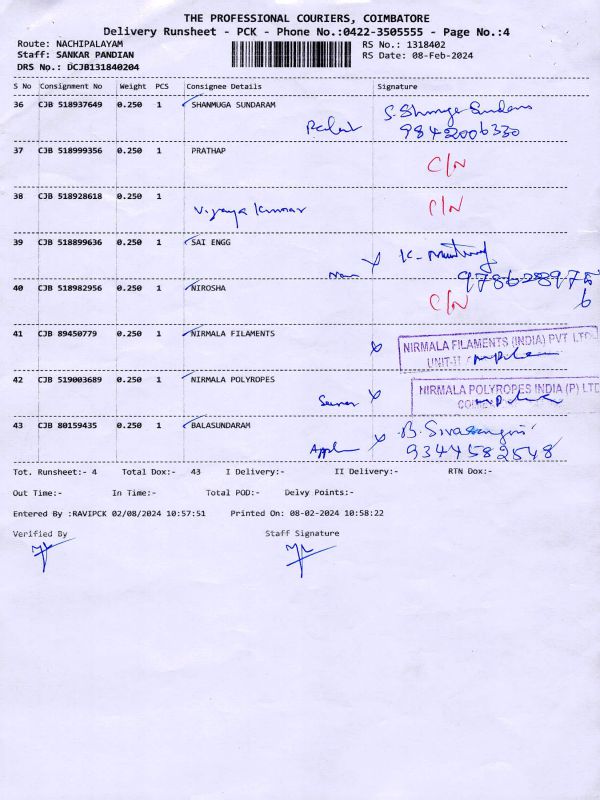 THE PROFESSIONAL COURIERS, COIMBATORE
Delivery Runsheet - PCK - Phone No.:0422-3505555 - Page No.:4
Route: NACHIPALAYAM RS No.: 1318402
Staff: SANKAR PANDIAN RS Date: 08-Feb-2024
DRS No.: DCJB131840204
S No Consignment No Weight PCS Consignee Details Signature
36 CJB 518937649 0.250 1 SHANMUGA SUNDARAM
9842006330
37 CJB 518999356 0.250 1 PRATHAP C/N
38 CJB 518928618 0.250 1 C/N
Vijaya Kumar
39 CJB 518899636 0.250 1 SAI ENGG
40 CJB 518982956 0.250 1 NIROSHA C/N
41 CJB 89450779 0.250 1 NIRMALA FILAMENTS
NIRMALA FILAMENTS (INDIA) PVT LTD
UNIT-II
42 CJB 519003689 0.250 1 NIRMALA POLYROPES
NIRMALA POLYROPES INDIA (P) LTD
43 CJB 80159435 0.250 1 BALASUNDARAM
9344582548
Tot. Runsheet:- 4 Total Dox:- 43 I Delivery:- II Delivery:- RTN Dox:-
Out Time:- In Time:- Total POD:- Delvy Points:-
Entered By :RAVIPCK 02/08/2024 10:57:51 Printed On: 08-02-2024 10:58:22
Verified By Staff Signature